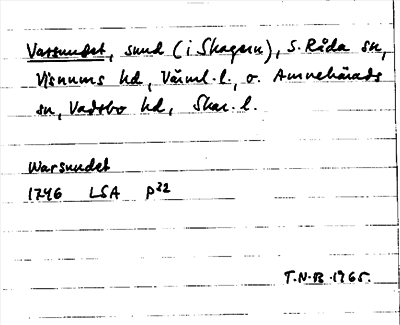 Varsundet, sund (i Skagern), S. Råda sn,
Visnums hd, Värml. l., o. Amnehärads
sn, Vadsbo hd, Skar. l.
Warsundet
1746 LSA P22
T.N-B. 1965.